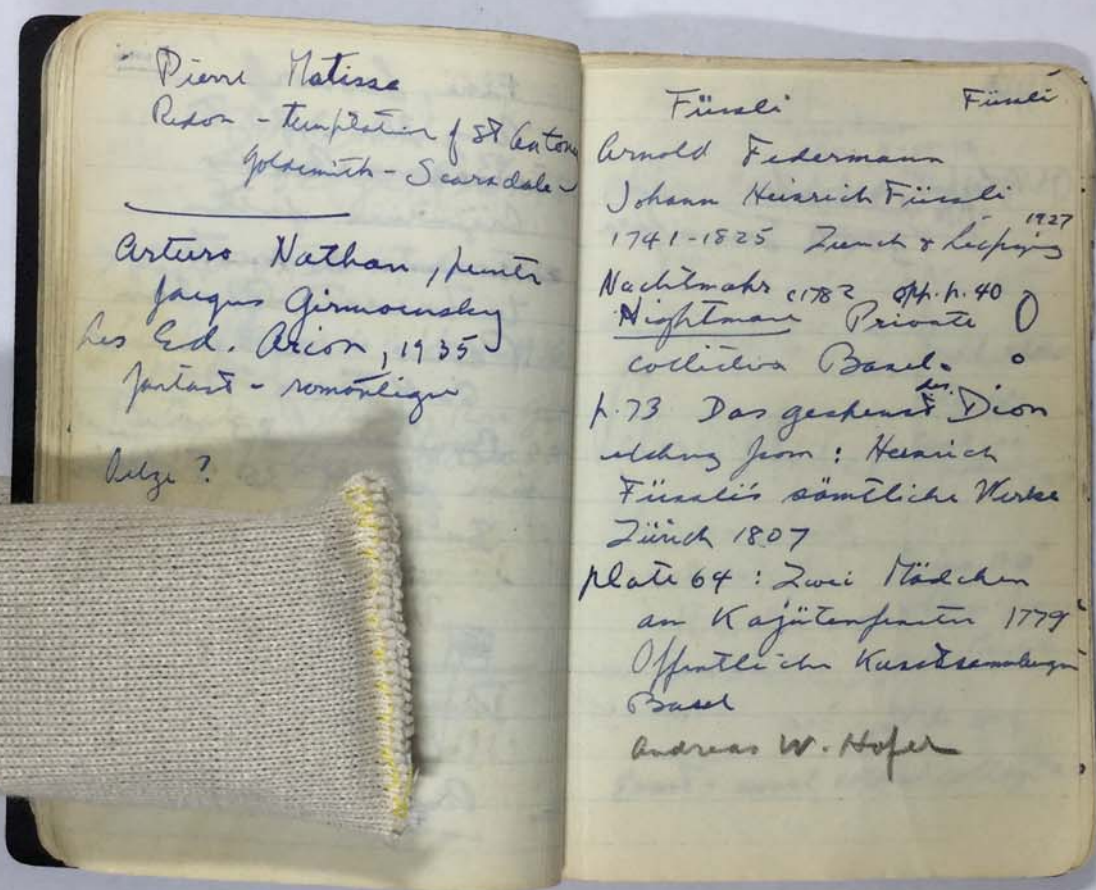 Pierre Matisse
Redon - temptation of St Antony
Goldsmith - Scarsdale -
Arturo Nathan, peintre
Jacques Girmounsky
Les Ed. Arion, 1935
fantast - romantique
Oelze ?
Füssli Füssli
Arnold Federmann
Johann Heinrich Füssli
1927
1741-1825 Zurich & Leipzig
Nachtmahr c1782 opp. p. 40
Nightmare Private
collection Basel.
p. 73 Das gespenst des Dion
etching from : Heinrich
Füssli's sämtliche Werke
Zürich 1807
plate 64 : Zwei Mädchen
am Kajütenfenster 1779
Offentliche Kunstsammlungen
Basel
Andreas W. Hofer